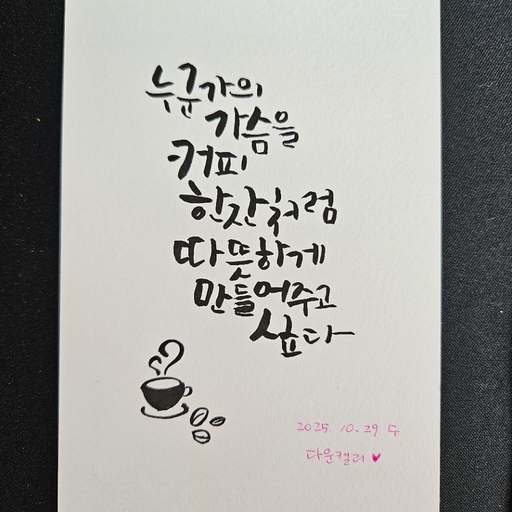 누군가의
가슴을
커피
한잔처럼
따뜻하게
만들어주고
싶다
2025. 10. 29 수
다운캘리 ♥